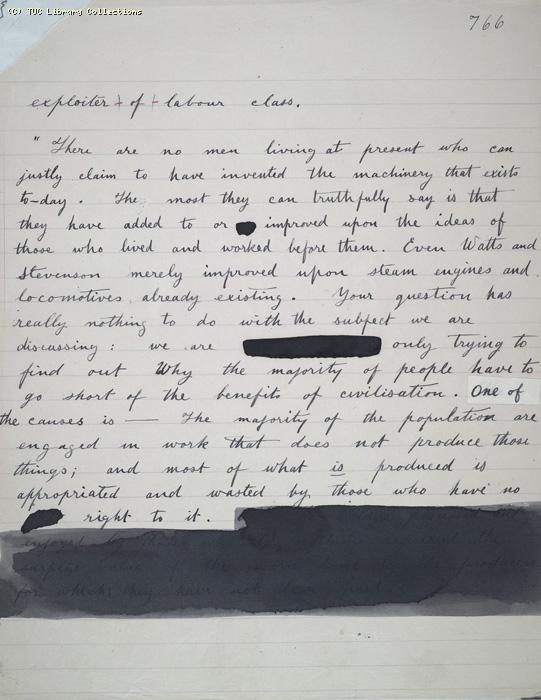 (C) TUC Library Collections
766
exploiter of labour class.
"There are no men living at present who can
justly claim to have invented the machinery that exists
to-day. The most they can truthfully say is that
they have added to or improved upon the ideas of
those who lived and worked before them. Even Watts and
Stevenson merely improved upon steam engines and
locomotives already existing. Your question has
really nothing to do with the subject we are
discussing: we are only trying to
find out Why the majority of people have to
go short of the benefits of civilisation. One of
the causes is — The majority of the population are
engaged in work that does not produce those
things; and most of what is produced is
appropriated and wasted by those who have no
right to it.
the
surplus value of the
for which they have not been paid